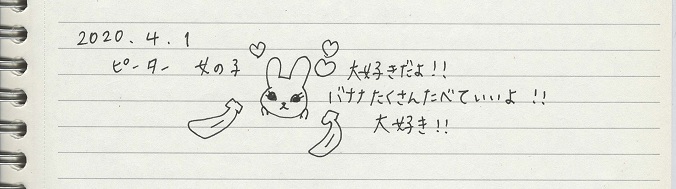 2020.4.1
ピーター 女の子
大好きだよ!!
バナナたくさんたべていいよ!!
大好き!!